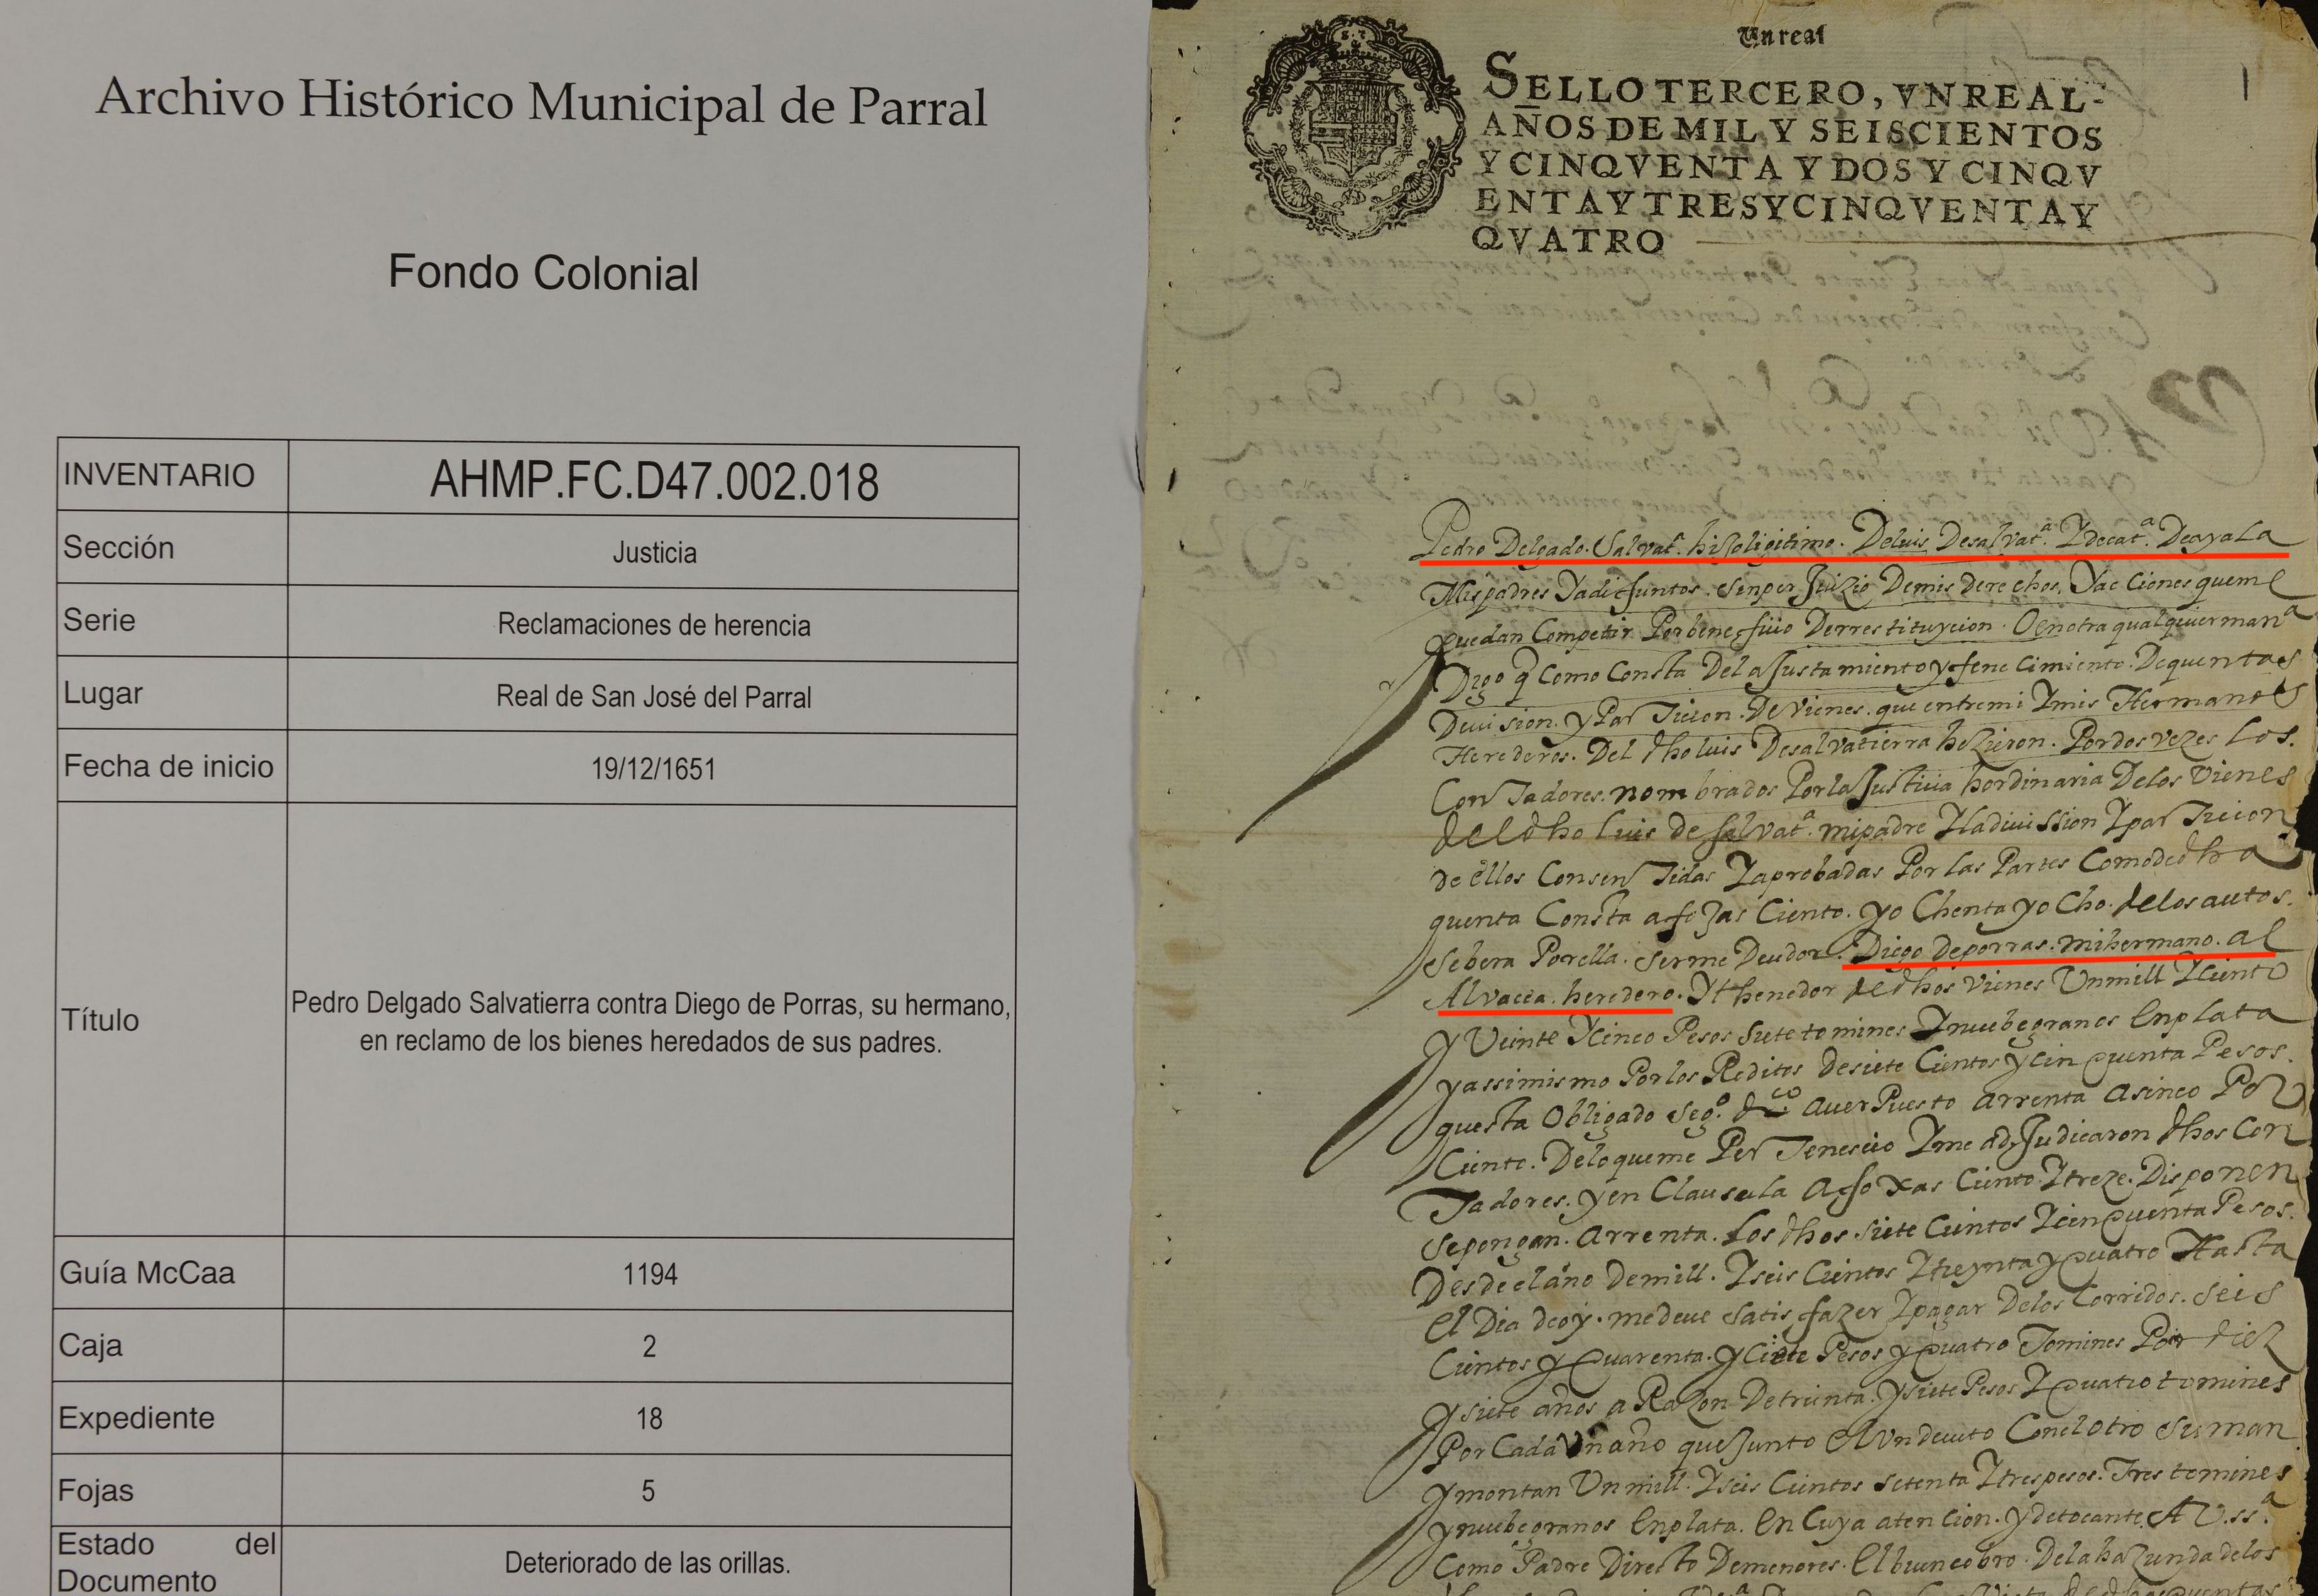 Archivo Histórico Municipal de Parral
Fondo Colonial
INVENTARIO AHMP.FC.D47.002.018
Sección Justicia
Serie Reclamaciones de herencia
Lugar Real de San José del Parral
Fecha de inicio 19/12/1651
Título Pedro Delgado Salvatierra contra Diego de Porras, su hermano,
en reclamo de los bienes heredados de sus padres.
Guía McCaa 1194
Caja 2
Expediente 18
Fojas 5
Estado del
Documento Deteriorado de las orillas.
Un real
1
SELLO TERCERO, VN REAL-
AÑOS DE MIL Y SEISCIENTOS
Y CINQVENTA Y DOS Y CINQV
ENTA Y TRES Y CINQVENTA Y
QVATRO
Pedro Delgado. Salvatª. hijo ligitimo. De luis Desalvatª. Y de catª. De ayala
Mis padres Ya difuntos. sin per Juizio De mis derechos, Y acciones que me
puedan Competir Por benefiiio De rrestituycion. O en otra qualquier manª
Digo q Como Consta Del aJustamiento y fenecimiento. De quentas
Devision. y ParTicion. De Vienes. que entre mi Y mis Hermanos
Herederos. Del dho luis Desalvatierra hizieron. Por dos vezes los.
ConTadores. nombrados Por la Justicia hordinaria De los Vienes
del dho luis de salvatª. mi padre Y la divission Y parTicion
de ellos ConsenTidas Y aprobadas Por las Partes Como de dha
quenta Consta a foJas Ciento. y o Chenta y o Cho. de los autos.
Se bera Por ella. serme Deudor. Diego de porras. mi hermano. al
Alvacea. heredero. Y thenedor de dhos Vienes Un mill Y ciento
y Veinte Y cinco Pesos siete tomines Y nuebe granos En plata
y assimismo Por los Reditos de siete Cientos y cinquenta Pesos.
questa Obligado segº. dco aver Puesto arrenta a sinco Por
Ciento. De lo que me PerTenesiio Y me adJudicaron dhos Con
Tadores. y en Clausula a fo xas Ciento Y treze. Disponen
se pongan. arrenta. los dhos. siete Cientos Y cinquenta Pesos.
Desde el año de mill. Y seis Cientos Y treynta y quatro Hasta
El Dia de oy. me deve satisfazer Y pagar De los Corridos. seis
Cientos y quarenta. y Ciete Pesos y quatro Tomines Por diez
y siete años a Razon De treinta. y siete Pesos Y quatro tomines
Por Cada Un año que Junto El Un devito Con el otro suman
y montan Un mill. Y seis Cientos setenta Y tres pesos. Tres tomines
y nuebe granos En plata. En Cuya atencion. y de tocante A V.ssª.
Como Padre Directo De menores. El buen cobro. De la hazienda de los